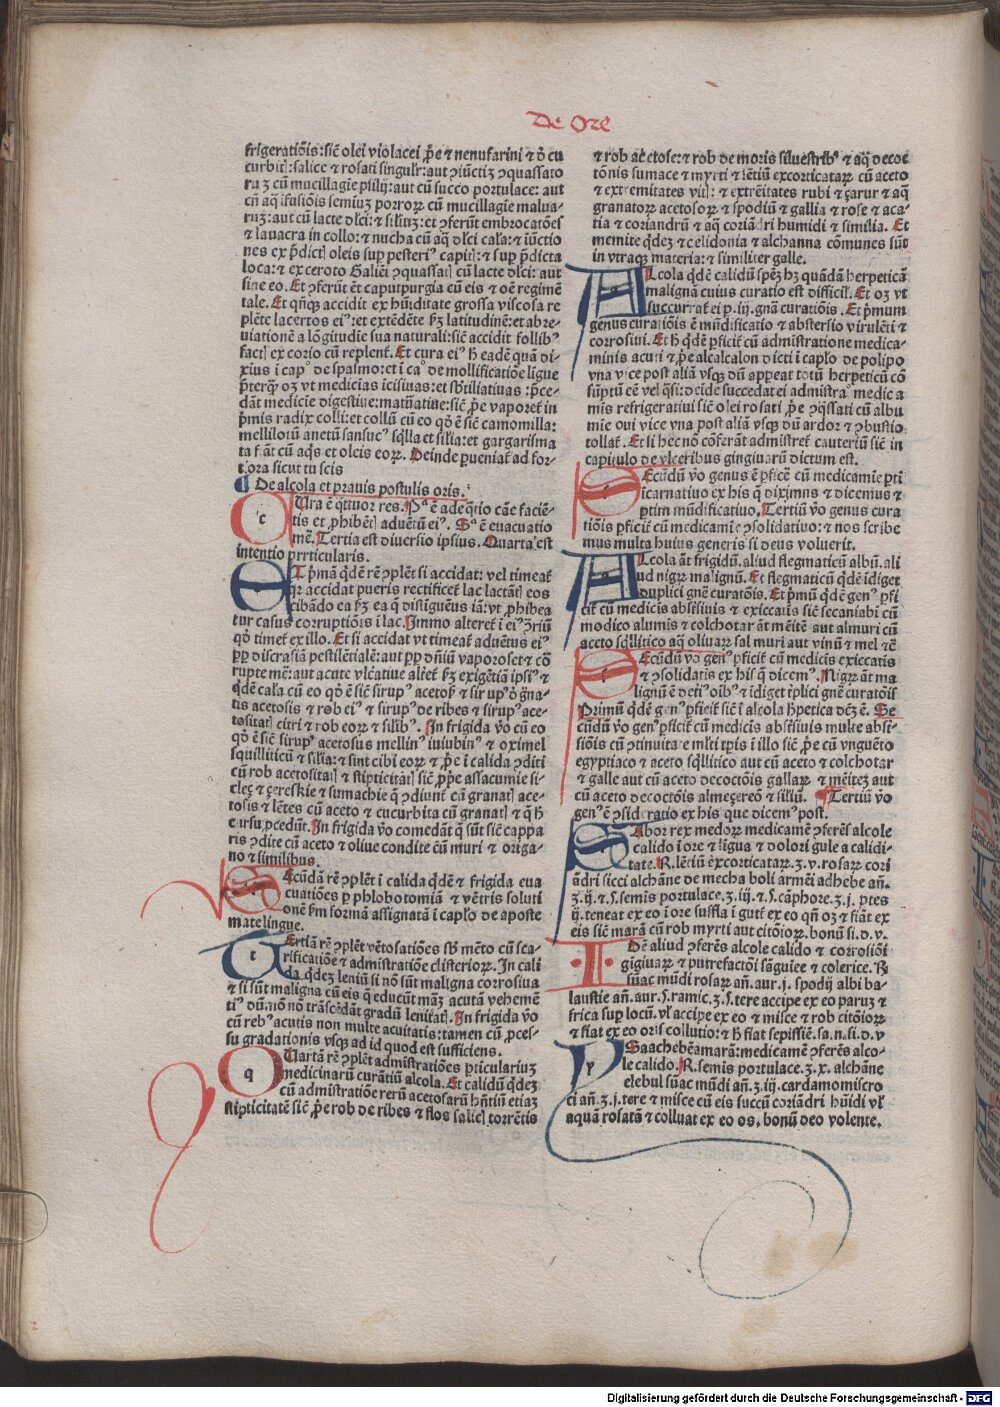 De Ore
frigeratiōis: sic̄ olei violacei p̄e ⁊ nenufarini ⁊ d̄ cu
curbit: salice ⁊ rosati singulr̄: aut ꝯiūctis ꝯquassato
ruꝫ cū mucillagie psilij: aut cū succo portulace: aut
cū aq̄ ifusiōis semiuꝫ porroꝝ cū mucillagie malua-
ruꝫ: aut cū lacte dl̄ci: ⁊ siliuꝫ: et ꝯferūt embrocatōes
⁊ lauacra in collo: ⁊ nucha cū aq̄ dl̄ci cal̄a: ⁊ iūctio
nes ex p̄dict oleis suꝑ pesterio᷒ capit: ⁊ suꝑ p̄dicta
loca: ⁊ ex ceroto Galiēi ꝯquassat cū lacte dl̄ci: aut
sine eo. Et ꝯferūt ēt caputpurgia cū eis ⁊ oē regimē
tale. Et qn̄qꝫ accidit ex hūiditate grossa viscosa re
plēte lacertos ei᷒: et extēdēte ẜꝫ latitudinē: et abre-
uiationē a lōgitudie sua naturali: sic̄ accidit follib᷒
fact ex corio cū replent̄. Et cura ei᷒ h̄ eadē quā di-
xius i cap̄o de spasmo: et i ca° de mollificatiōe ligue
p̄terqꝫ oꝫ vt medicias icisiuas: et sb̄tiliatiuas: p̄ce-
dāt medicie digestiue: matūatiue: sic̄ p̄e vaporet̄ in
p̄mis radix colli: et collū cū eo qd̄ ē sic̄ camomilla:
mellilotū anetū sansuc᷒ sq̄lla et silia: et gargarisma
ta fāt cū aq̄s et oleis eoꝝ. Deinde ꝑueniat̄ ad for-
tiora sicut tu scis
De alcola et prauis postulis oris.
CUra ē q̄ttuor res. Pa ē adeq̄tio cāe faciē-
tis et ꝓhibet aduētū ei᷒. Sa ē euacuatio
mē. Tertia est diuersio ipsius. Quarta est
intentio ꝑrticularis.
ET p̄mā q̄dē rē ꝯplēt si accidat: vel timeat̄
qꝛ accidat pueris rectificet̄ lac lactāt eos
cibādo ea ẜꝫ ea q̄ distiguēus iā: vt ꝓhibea
tur casus corruptiōis i lac. Immo alteret̄ i ei᷒ ꝯriū
qd̄ timet̄ ex illo. Et si accidat vt timeat̄ aduētus ei᷒
ꝓp̄ discrasiā pestilētialē: aut ꝓp̄ dn̄iū vaporoset ⁊ cō
rupte mē: aut acute vlc̄atiue alt̄et̄ ẜꝫ exigētiā ipsi᷒ ⁊
q̄dē cal̄a cū eo qd̄ ē sic̄ sirup᷒ acetos᷒ ⁊ sirup᷒ d̄ gn̄a-
tis acetosis ⁊ rob ei᷒ ⁊ sirup᷒ de ribes ⁊ sirup᷒ ace-
tositat citri ⁊ rob eoꝝ ⁊ silib᷒. In frigida v̄o cū eo
qd̄ ē sic̄ sirup᷒ acetosus mellin᷒ iuiubin᷒ ⁊ oximel
squilliticū ⁊ silia: ⁊ sint cibi eoꝝ ⁊ p̄e i calida ꝯditi
cū rob acetositat ⁊ stipticitat sic̄ ꝓp̄e assacumie si-
cles ⁊ cereskie ⁊ sumachie q̄ ꝯdiunt̄ cū granat ace-
tosis ⁊ lētes cū aceto ⁊ cucurbita cū granat ⁊ q̄ h̄
cursu ꝓcedūt. In frigida v̄o comedāt q̄ sūt sic̄ cappa
ris ꝯdite cū aceto ⁊ oliue condite cū muri ⁊ origa-
no ⁊ similibus.
SEcūdā rē ꝯplēt i calida q̄dē ⁊ frigida eua
cuatiōes ꝑ phlobotomiā ⁊ vētris soluti
onē ẜm formā assignatā i cap̄lo de aposte
mate lingue.
TErtiā rē ꝯplēt vētosatiōes sb̄ mēto cū sca-
rificatiōe ⁊ admistratiōe clisterioꝝ. In cali
da q̄dez leniū si nō sūt maligna corrosiua
⁊ si sūt maligna cū eis q̄ educūt māꝫ acutā vehemē
ti᷒ dūmō nō trāscēdāt gradū lenitat. In frigida v̄o
cū reb᷒ acutis non multe acuitatis: tamen cū ꝓces-
su gradationis vsqꝫ ad id quod est sufficiens.
QUartā rē ꝯplēt admistratiōes ꝑticulariuꝫ
medicinarū curātiū alcola. Et calidū q̄dez
cū admistratiōe rerū acetosarū hn̄tiū etiaꝫ
stipticitatē sic̄ p̄e rob de ribes ⁊ flos salic torrētis
⁊ rob acetose: ⁊ rob de moris siluestrib᷒ ⁊ aq̄ decoc
tōnis sumace ⁊ myrti ⁊ lētiū excorticataꝝ cū aceto
⁊ extremitates vit: ⁊ extrēitates rubi ⁊ carur ⁊ aq̄
granatoꝝ acetosoꝝ ⁊ spodiū ⁊ gallia ⁊ rose ⁊ aca-
tia ⁊ coriandrū ⁊ aq̄ coriādri humidi ⁊ similia. Et
memite q̄dez ⁊ celidonia ⁊ alchanna cōmunes sūt
in vtraqꝫ materia: ⁊ similiter galle.
ALcola q̄dē calidū spēꝫ hꝫ quādā herpeticā
malignā cuius curatio est difficil̄. Et oꝫ vt
succurrat̄ ei ꝑ. iij. gn̄a curatiōis. Et p̄mum
genus curatiōis ē mūdificatio ⁊ abstersio virulēti ⁊
corrosiui. Et h̄ q̄dē ꝑficit̄ cū admistratione medica-
minis acuti ⁊ p̄e alcalcalon dicti i cap̄lo de polipo
vna vice post aliā vsqꝫ dū appeat totū herpeticū cō
sūptū eē vel q̄si: deide succedat ei admistra° medica
mis refrigeratiui sic̄ olei rosati p̄e ꝯq̄ssati cū albu
mie oui vice vna post aliā vsqꝫ dū ardor ⁊ ꝯbustio
tollat̄. Et si hec nō cōferāt admistret̄ cauteriū sic̄ in
capitulo de vlceribus gingiuarū dictum est.
SEcūdū v̄o genus ē ꝑfice cū medicamie ꝑti
icarnatiuo ex his q̄ diximus ⁊ dicemus ⁊
ꝑtim mūdificatiuo. Tertiū v̄o genus cura
tiōis ꝑficit̄ cū medicamie ꝯsolidatiuo: ⁊ nos scribe
mus multa huius generis si deus voluerit.
ALcola āt frigidū. aliud flegmaticū albū. ali
ud nigꝝ malignū. Et flegmaticū q̄dē idiget
duplici gn̄e curatōis. Et p̄mū q̄dē gen᷒ ꝑfi
cit̄ cū medicis abst̄siuis ⁊ exiccatis sic̄ secaniabi cū
modico alumis ⁊ colchotar āt mētē aut almuri cū
aceto sq̄llitico aq̄ oliuaꝝ sal muri aut vinū ⁊ mel ⁊ē
SEcūdū v̄o gen᷒ ꝑficit̄ cū medicis exiccatis
⁊ ꝯsolidatis ex his q̄ dicem᷒. Nigꝝ āt ma
lignū ē deti᷒ oib᷒ ⁊ idiget tp̄lici gn̄e curatōis
Primū q̄dē gen᷒ ꝑficit̄ sic̄ i alcola h̄petica dc̄ꝫ ē. Se
cūdū v̄o gen᷒ ꝑficit̄ cū medicis abst̄siuis multe abst̄
siōis cū ꝯtinuitate ml̄ti tꝑis i illo sic̄ p̄e cū vnguēto
egyptiaco ⁊ aceto sq̄llitico aut cū aceto ⁊ colchotar
⁊ galle aut cū aceto decoctōis gallaꝝ ⁊ mēteꝫ aut
cū aceto decoctōis almecereō ⁊ siliū. Tertiū v̄o
gen᷒ ē ꝯsideratio ex his que dicem᷒ post.
SAbor rex medoꝝ medicamē ꝯferēs alcole
calido i ore ⁊ ligua ⁊ dolori gule a calidi-
tate. R. lētiū excorticataꝝ. ʒ. v. rosaꝝ cori
ādri sicci alchāne de mecha boli armēi adhebe an̄.
ʒ. ij. ⁊. s̄. semis portulace. ʒ. iij. ⁊. s̄. cāphore. ʒ. j. ptes
ij. teneat ex eo i ore suffla i gutt̄ ex eo qn̄ oꝫ ⁊ fiāt ex
eis sic̄ marā cū rob myrti aut citōioꝝ. bonū si. d. v.
IDē aliud ꝯferēs alcole calido ⁊ corrosiōi
gigiuaꝝ ⁊ putrefactōi sāguiee ⁊ colerice. R
sūac mūdi rosaꝝ an̄. aur. j. spodij albi ba-
laustie an̄. aur. s̄. ramic. ʒ. s̄. tere accipe ex eo paruꝫ ⁊
frica sup locū. vl̄ accipe ex eo ⁊ misce ⁊ rob citōioꝝ
⁊ fiat ex eo oris collutio: ⁊ h̄ fiat sepissiē. sa. n. si. d. v
YSaachebēamarā: medicamē ꝯferēs alco-
le calido. R. semis portulace. ʒ. x. alchāne
elebul sūac mūdi an̄. ʒ. iij. cardamomi scro
ci an̄. ʒ. j. tere ⁊ misce cū eis succū coriādri hūidi vl̄
aquā rosatā ⁊ colluat ex eo os. bonū deo volente.
Digitalisierung gefördert durch die Deutsche Forschungsgemeinschaft - DFG